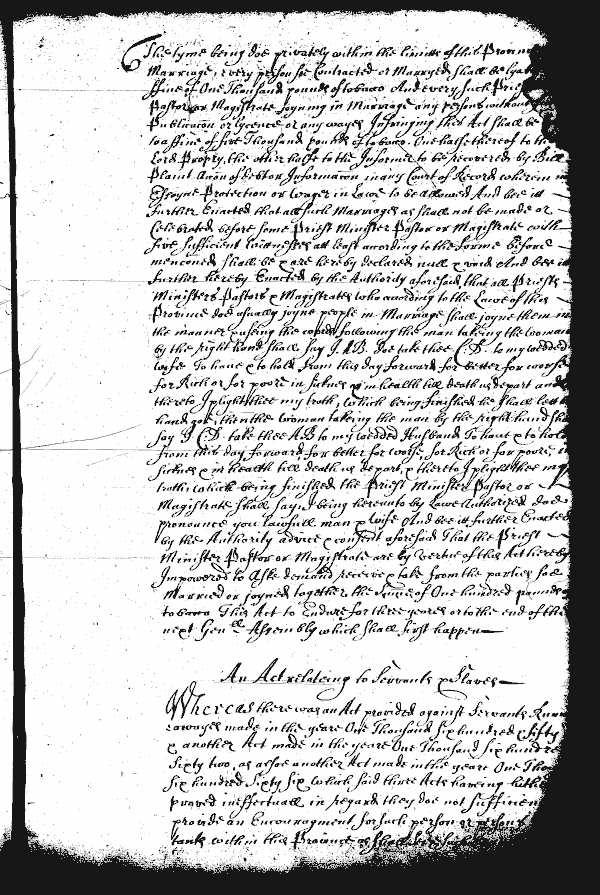 The tyme being doe privately within the limitts of this Provin
Marriage, every person soe Contracted or Marryed shall be lyable
ffine of One Thousand pounds of tobacco And every such Priest
Pastor or Magistrate joyning in Marriage any persons without
Publicacon or lycence or any wayes Infringing this Act shall be
to a ffine of five Thousand pounds of tobacco One halfe thereof to the
Lord Propry, the other halfe to the Informer to be recovered by Bill
Plaint Accon of debt or Informacon in any Court of Record wherein no
Essoyne Protection or Wager in Lawe to be allowed And bee itt
further Enacted that all such Marriages as shall not be made or
Celebrated before some Priest Minister Pastor or Magistrate with
five sufficient wittnesses att least according to the forme before
menconed shall be & are hereby declared null & void And bee it
further hereby Enacted by the Authority aforesaid that all Priests
Ministers Pastors & Magistrates who according to the Lawe of this
Province doe usually joyne people in Marriage shall joyne them in
the manner following the man taking the woman
by the right hand shall say I A.B. doe take thee C.D. to my wedded
wife To have & to hold from this day forward for better for worse
for Rich or for poore in sicknes & in health till death us depart and
thereto I plight thee my troth, which being finished he shall lett
hand goe, then the woman taking the man by the right hand sha
say I C:D take thee A:B to my wedded Husband To have & to hold
from this day forward, for better for worse, for Rich or for poore, in
sicknes & in health till death us depart, & thereto I plight thee my
troth which being finished the Priest Minister Pastor or
Magistrate shall say, I being hereunto by Lawe Authorized doe
pronounce you lawfull man & wife And bee it further Enacted
by the Authority advice & consent aforesaid That the Priest
Minister Pastor or Magistrate are by Vertue of this Act hereby
Impowered to Aske demand receive & take from the parties soe
married or joyned together the Sume of One hundred pounds o
tobacco This Act to Endure for three yeares or to the end of the
next Gen.ll Assembly which shall first happen
An Act relateing to Servants & Slaves
Whereas there was an Act provided against Servants Runn
awayes made in the yeare One Thousand six hundred & fifty
& another Act made in the yeare One Thousand six hundre
Sixty two, as alsoe another Act made in the yeare One Thou
six hundred Sixty Six which said three Acts having hithe
proved ineffectuall in regard they doe not sufficien
provide an Encouragment for such person or persons
within this Province as shall